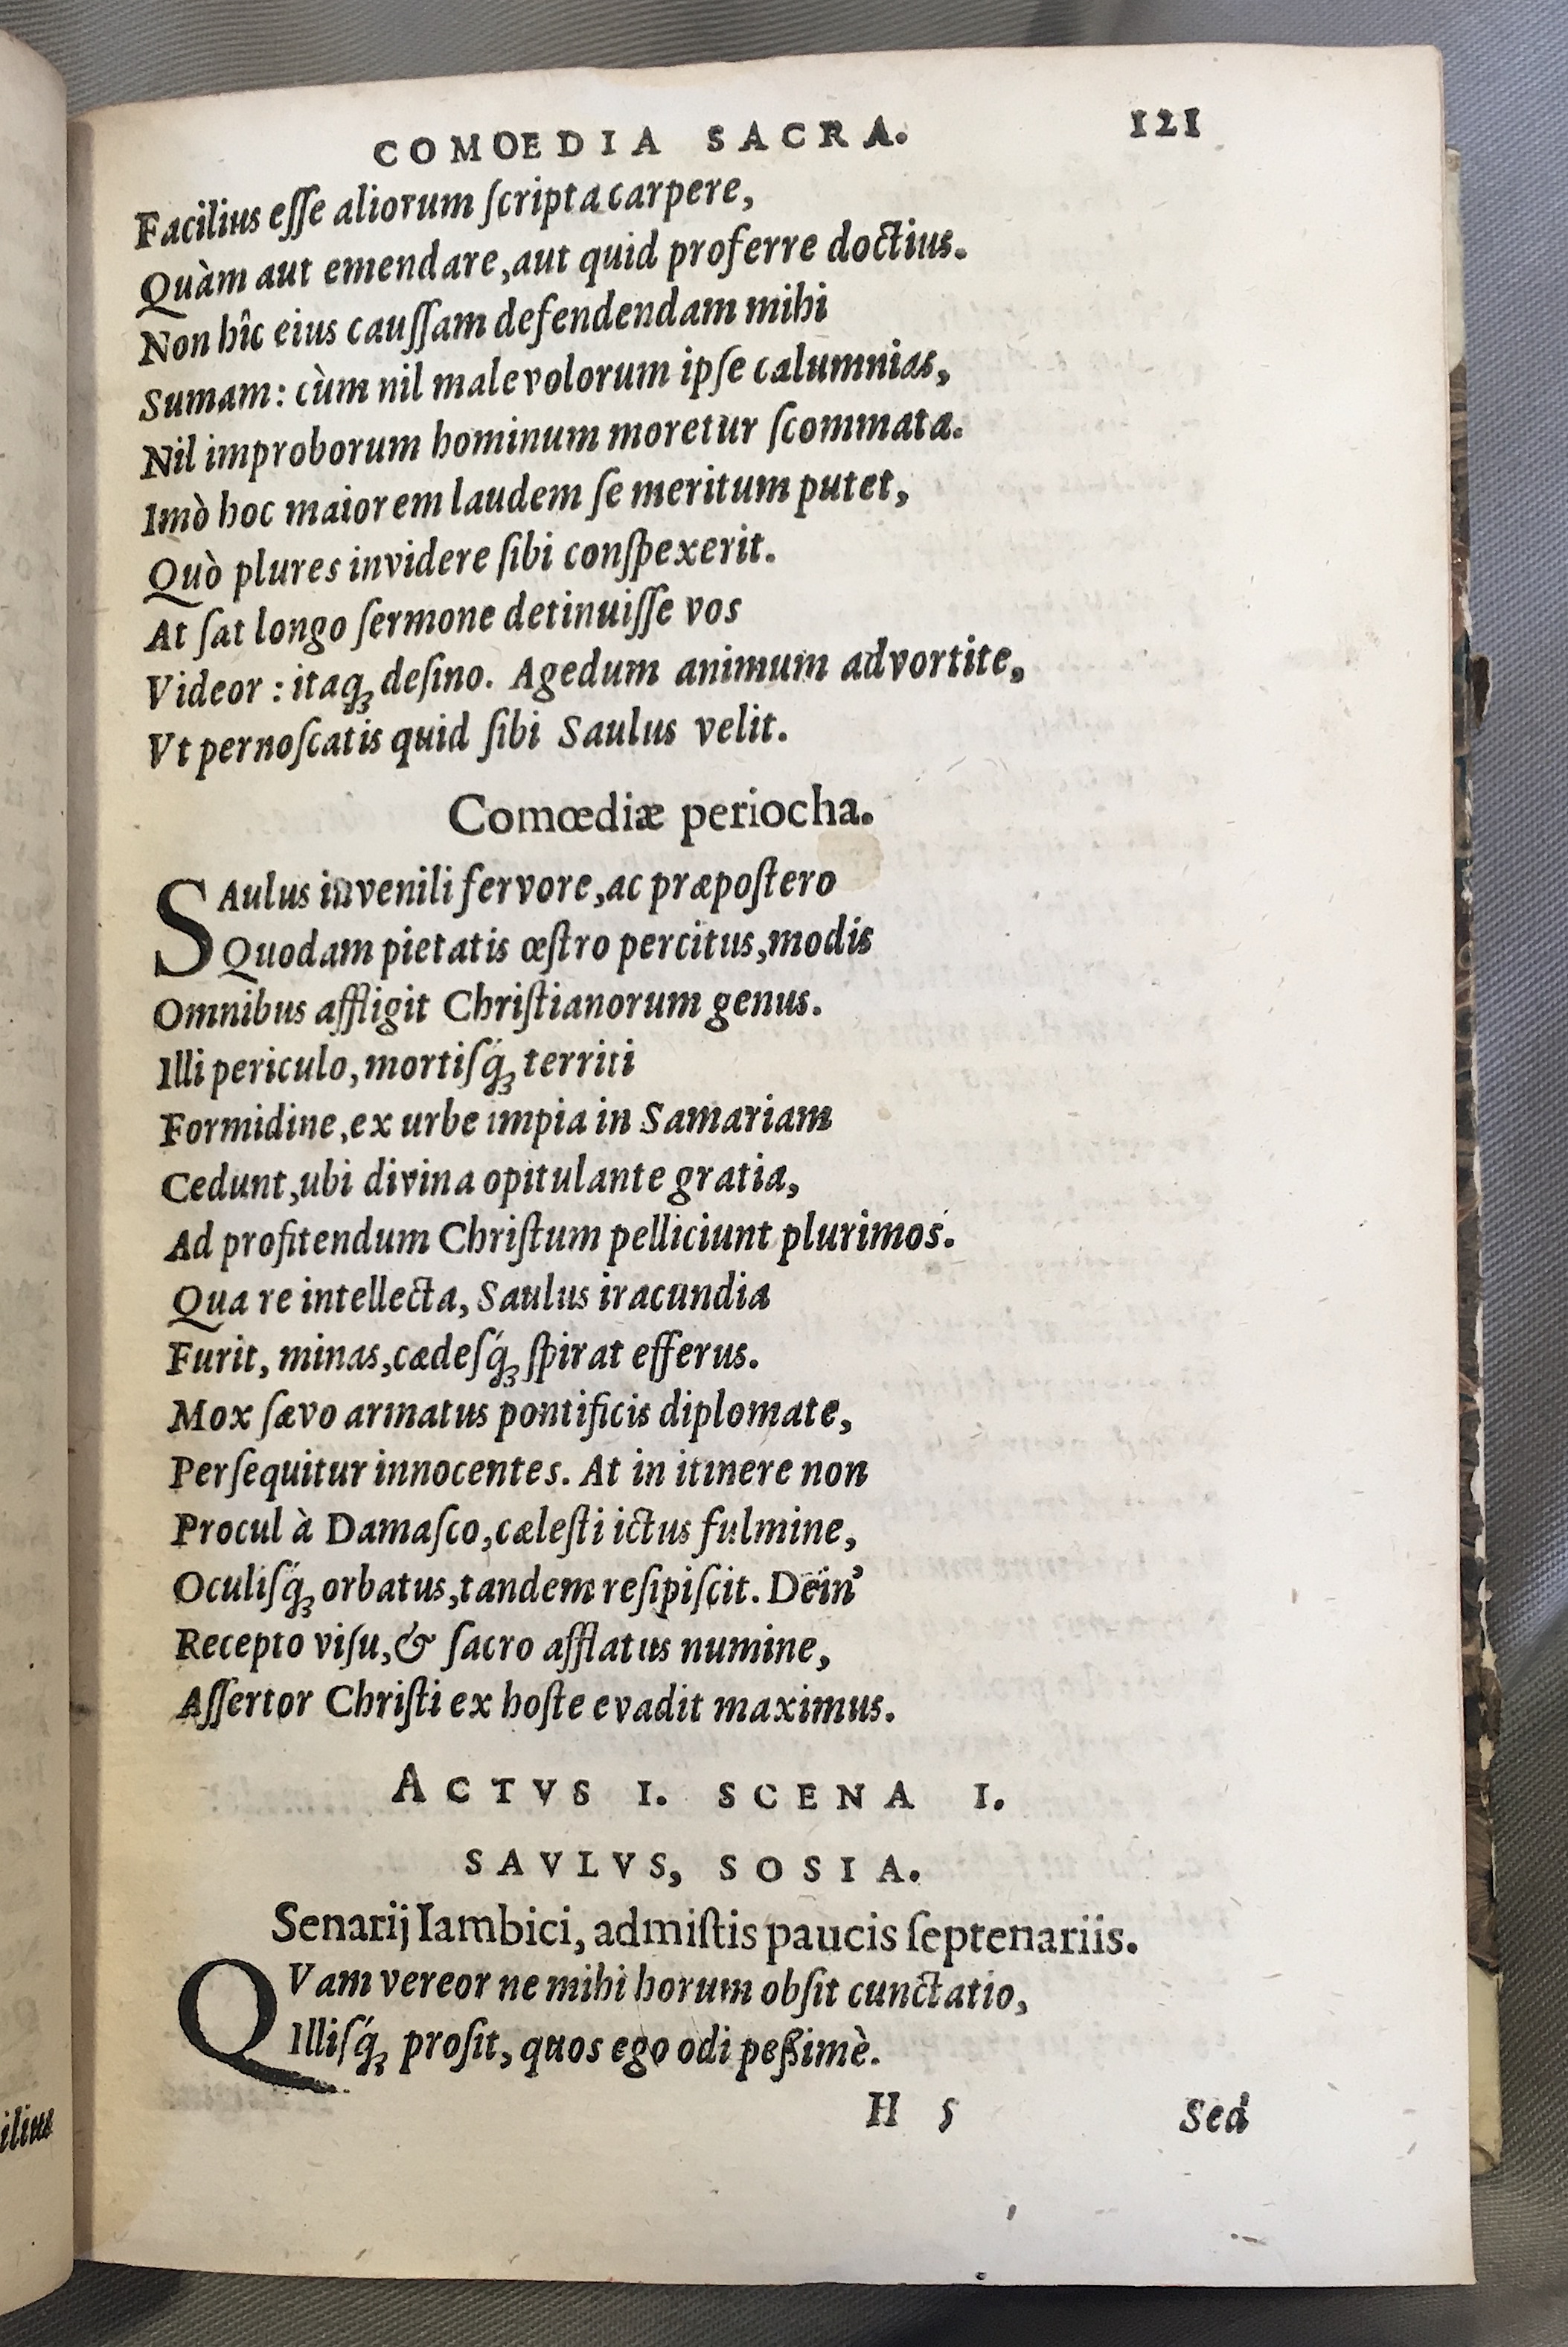 COMOEDIA SACRA. 121
Facilius eſſe aliorum ſcripta carpere,
Quàm aut emendare, aut quid proferre doctius.
Non hîc eius cauſſam defendendam mihi
Sumam: cùm nil malevolorum ipſe calumnias,
Nil improborum hominum moretur ſcommata.
Imò hoc maiorem laudem ſe meritum putet,
Quò plures invidere ſibi conſpexerit.
At ſat longo ſermone detinuiſſe vos
Videor: itaq́ꝫ deſino. Agedum animum advortite,
Vt pernoſcatis quid ſibi Saulus velit.
Comœdiæ periocha.
SAulus iuvenili fervore, ac præpoſtero
Quodam pietatis œſtro percitus, modis
Omnibus affligit Chriſtianorum genus.
Illi periculo, mortiſq́ꝫ territi
Formidine, ex urbe impia in Samariam
Cedunt, ubi divina opitulante gratia,
Ad profitendum Chriſtum pelliciunt plurimos.
Qua re intellecta, Saulus iracundia
Furit, minas, cædeſq́ꝫ ſpirat efferus.
Mox ſævo armatus pontificis diplomate,
Perſequitur innocentes. At in itinere non
Procul à Damaſco, cæleſti ictus fulmine,
Oculiſq́ꝫ orbatus, tandem reſipiſcit. Dëin'
Recepto viſu, & ſacro afflatus numine,
Aſſertor Chriſti ex hoſte evadit maximus.
ACTVS I. SCENA I.
SAVLVS, SOSIA.
Senarij Iambici, admiſtis paucis ſeptenariis.
QVam vereor ne mihi horum obſit cunctatio,
Illiſq́ꝫ proſit, quos ego odi peßimè.
H 5 Sed
ilius